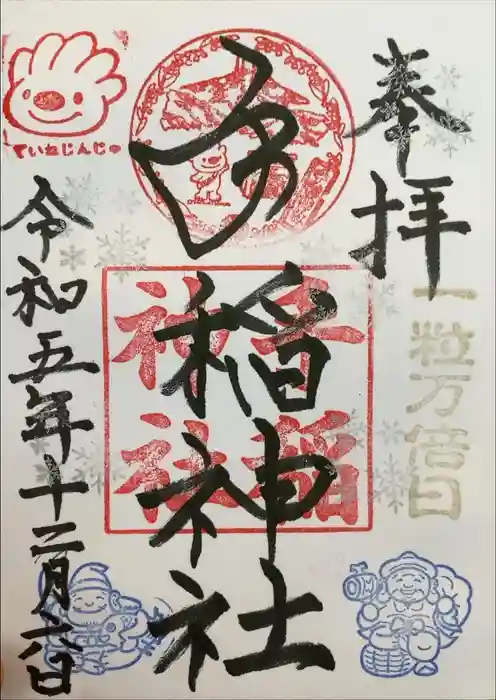 奉拝
一粒万倍日
手稲神社
手稲神社
ていねじんじゃ
令和五年十二月六日